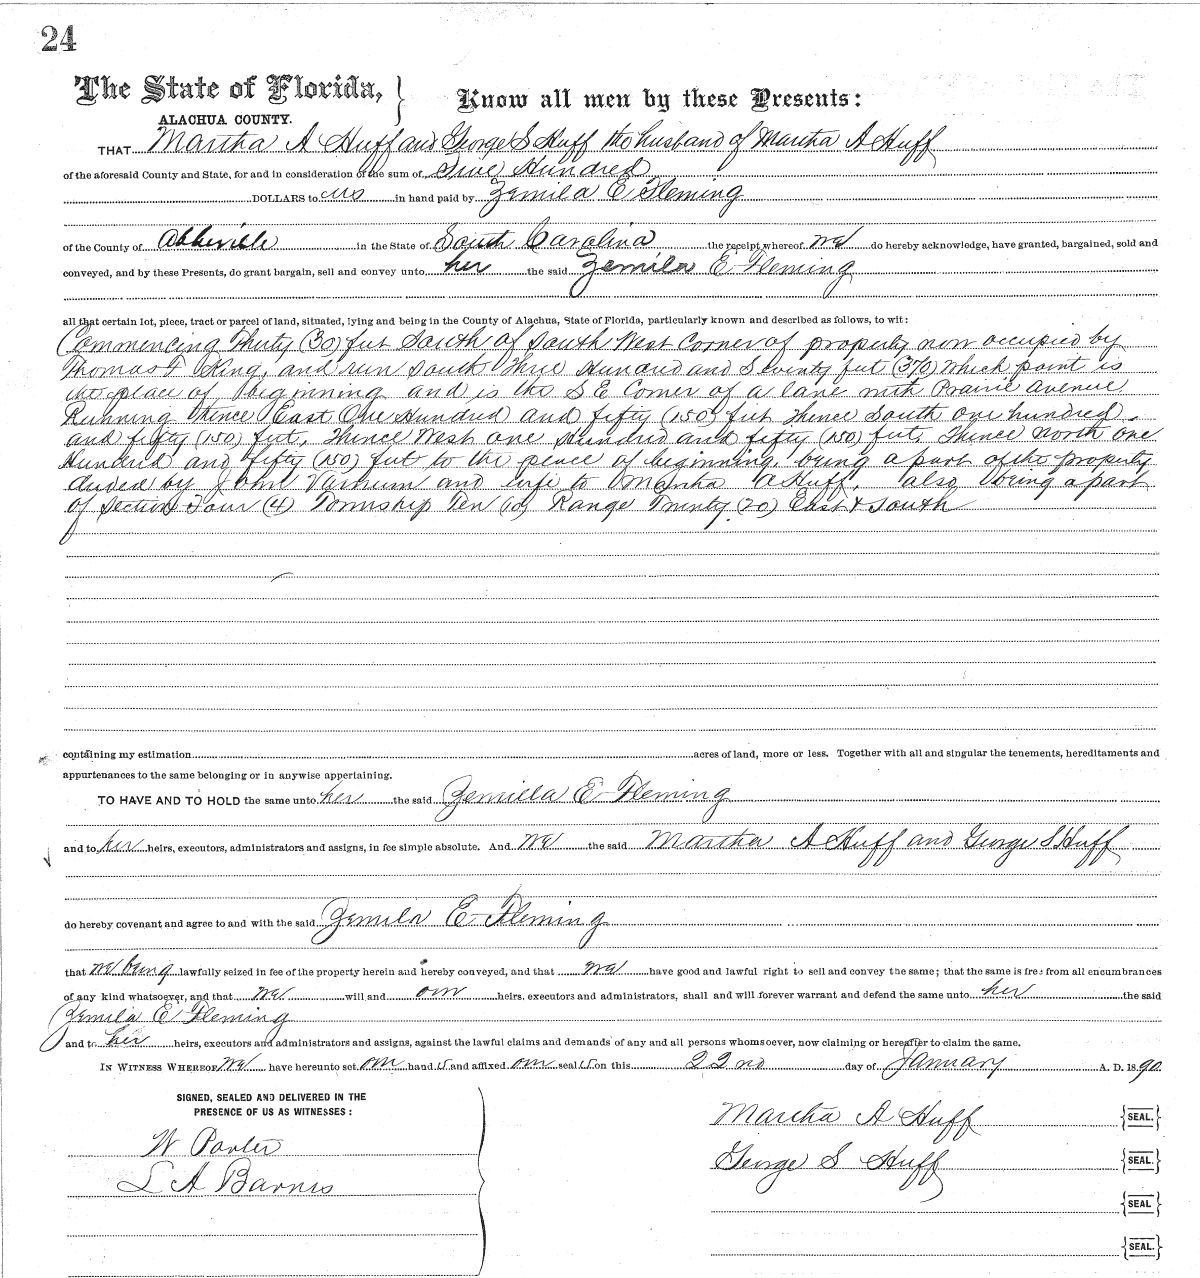 24
The State of Florida, } Know all men by these Presents:
ALACHUA COUNTY.
THAT Martha A Huff and George S Huff the husband of Martha A Huff
of the aforesaid County and State, for and in consideration of the sum of Five Hundred
DOLLARS to us in hand paid by Zemila E Fleming
of the County of Abbeville in the State of South Carolina the receipt whereof we do hereby acknowledge, have granted, bargained, sold and
conveyed, and by these Presents, do grant bargain, sell and convey unto her the said Zemila E Fleming
all that certain lot, piece, tract or parcel of land, situated, lying and being in the County of Alachua, State of Florida, particularly known and described as follows, to wit:
Commencing Thirty (30) feet South of South West Corner of property now occupied by
Thomas F King, and run South Three Hundred and Seventy feet (370) which point is
the place of beginning and is the S E Corner of a lane with Prairie Avenue
Running thence East One Hundred and fifty (150) feet thence South one hundred
and fifty (150) feet, thence West one hundred and fifty (150) feet, thence North one
Hundred and fifty (150) feet to the place of beginning, being a part of the property
deeded by John Varnum and wife to Martha A Huff, also being a part
of Section Four (4) Township Ten (10) Range Twenty (20) East & South
containing my estimation acres of land, more or less. Together with all and singular the tenements, hereditaments and
appurtenances to the same belonging or in anywise appertaining.
TO HAVE AND TO HOLD the same unto her the said Zemilla E Fleming
and to her heirs, executors, administrators and assigns, in fee simple absolute. And we the said Martha A Huff and George S Huff
do hereby covenant and agree to and with the said Zemila E Fleming
that we being lawfully seized in fee of the property herein and hereby conveyed, and that we have good and lawful right to sell and convey the same; that the same is free from all encumbrances
of any kind whatsoever, and that we will and our heirs. executors and administrators, shall and will forever warrant and defend the same unto her the said
Zemila E Fleming
and to her heirs, executors and administrators and assigns, against the lawful claims and demands of any and all persons whomsoever, now claiming or hereafter to claim the same.
IN WITNESS WHEREOF we have hereunto set our hand s and affixed our seal s on this 22nd day of January A. D. 1890.
SIGNED, SEALED AND DELIVERED IN THE
PRESENCE OF US AS WITNESSES:
Martha A Huff {SEAL.}
W
George S Huff {SEAL.}
L A Barnes
{SEAL}
{SEAL.}